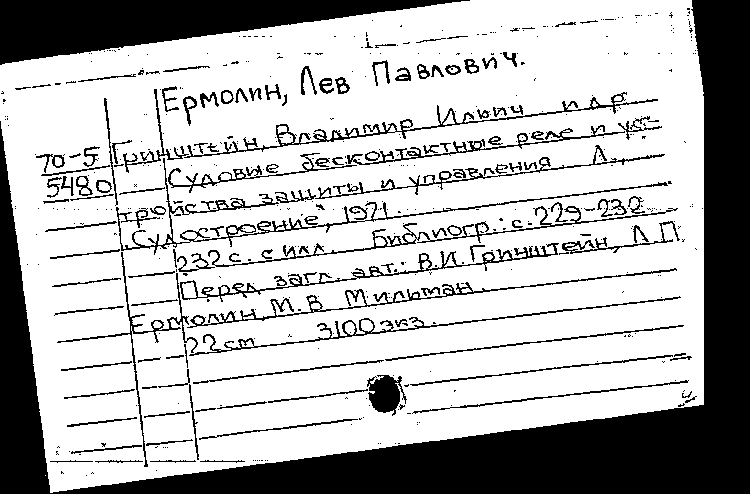 Ермолин, Лев Павлович.
70-5 Гринштейн, Владимир Ильич и др
5480 Судовые бесконтактные реле и ус-
тройства защиты и управления. Л.,
"Судостроение", 1971.
232 с. с илл. Библиогр.: с. 229-232
Перед загл. авт.: В.И. Гринштейн, Л.П.
Ермолин, М.В Мильман.
22 см 3100 экз.